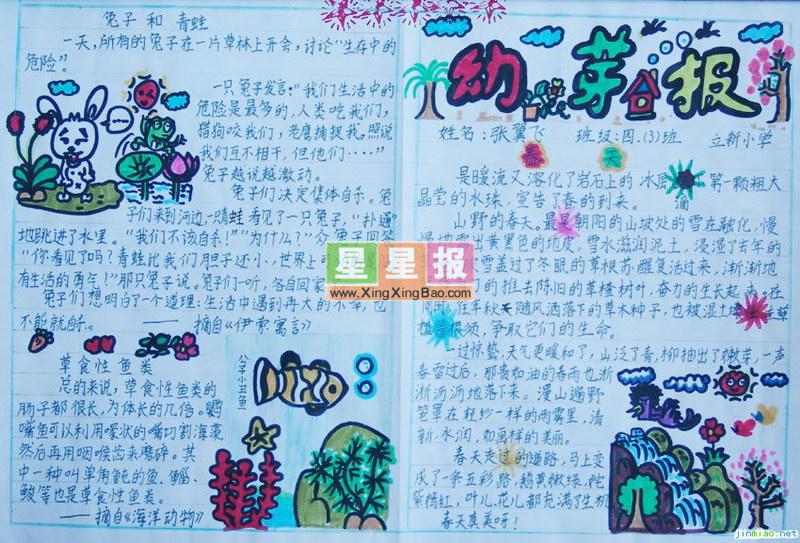 兔子 和 青蛙
一天,所有的兔子在一片草林上开会,讨论"生存中的
危险"。
一只兔子发言:"我们生活中的
危险是最多的,人类吃我们,
猎狗咬我们,老鹰捕捉我。照说
我们互不相干,但他们·····"
兔子越说越激动。
兔子们决定集体自杀。兔
子们来到河边,一只青蛙看见了一只兔子,"扑通"
地跳进了水里。"我们不该自杀!""为什么?"
"你看见了吗?青蛙比我们胆子还小,世界上
有生活的勇气!"那只兔子说。兔子们一听,各自回家
兔子们想明白了一个道理:生活中遇到再大的不幸,也
不能就
——摘自《伊索寓言》
草食性 鱼类
总的来说,草食性鱼类的
肠子都很长,为体长的几倍。鹦
嘴鱼可以利用喙状的嘴切割海藻,
然后再用咽喉齿来磨碎。其
中一种叫单角鲀的鱼、鲻、
鲅等也是草食性鱼类。
——摘自《海洋动物》
公子小丑(鱼)
幼芽报
姓名:张翼飞 班级:四.(3)班 立新小学
春 天
是暖流又溶化了岩石上的冰 第一颗粗大
晶莹的水珠,宣告了春的到来。
山野的春天。最是朝阳的山坡处的雪在融化,慢
慢地露出黄黑色的地皮,雪水滋润泥土,浸湿了去年的
雪盖过了冬眠的草根苏醒复活过来,渐渐地
们的推去陈旧的草楂树叶,奋力的生长起来。在
在年秋天随风洒落下的草木种子,也被湿土
须,争取它们的生命。
一过惊蛰,天气更暖和了,山泛了青,柳抽出了嫩芽,一声
春雷过后,那贵如油的春雨也淅
淅沥沥地落下来。漫山遍野
笼罩在轻纱一样的雨雾里,清
新水润,如画样的美丽。
春天走过的道路,马上变
成了一条五彩路,鹅黄嫩绿,桃
紫嫣红,叶儿花儿都充满了生机
春天真美呀!
星星报
www.XingXingBao.com
jinmiao.net